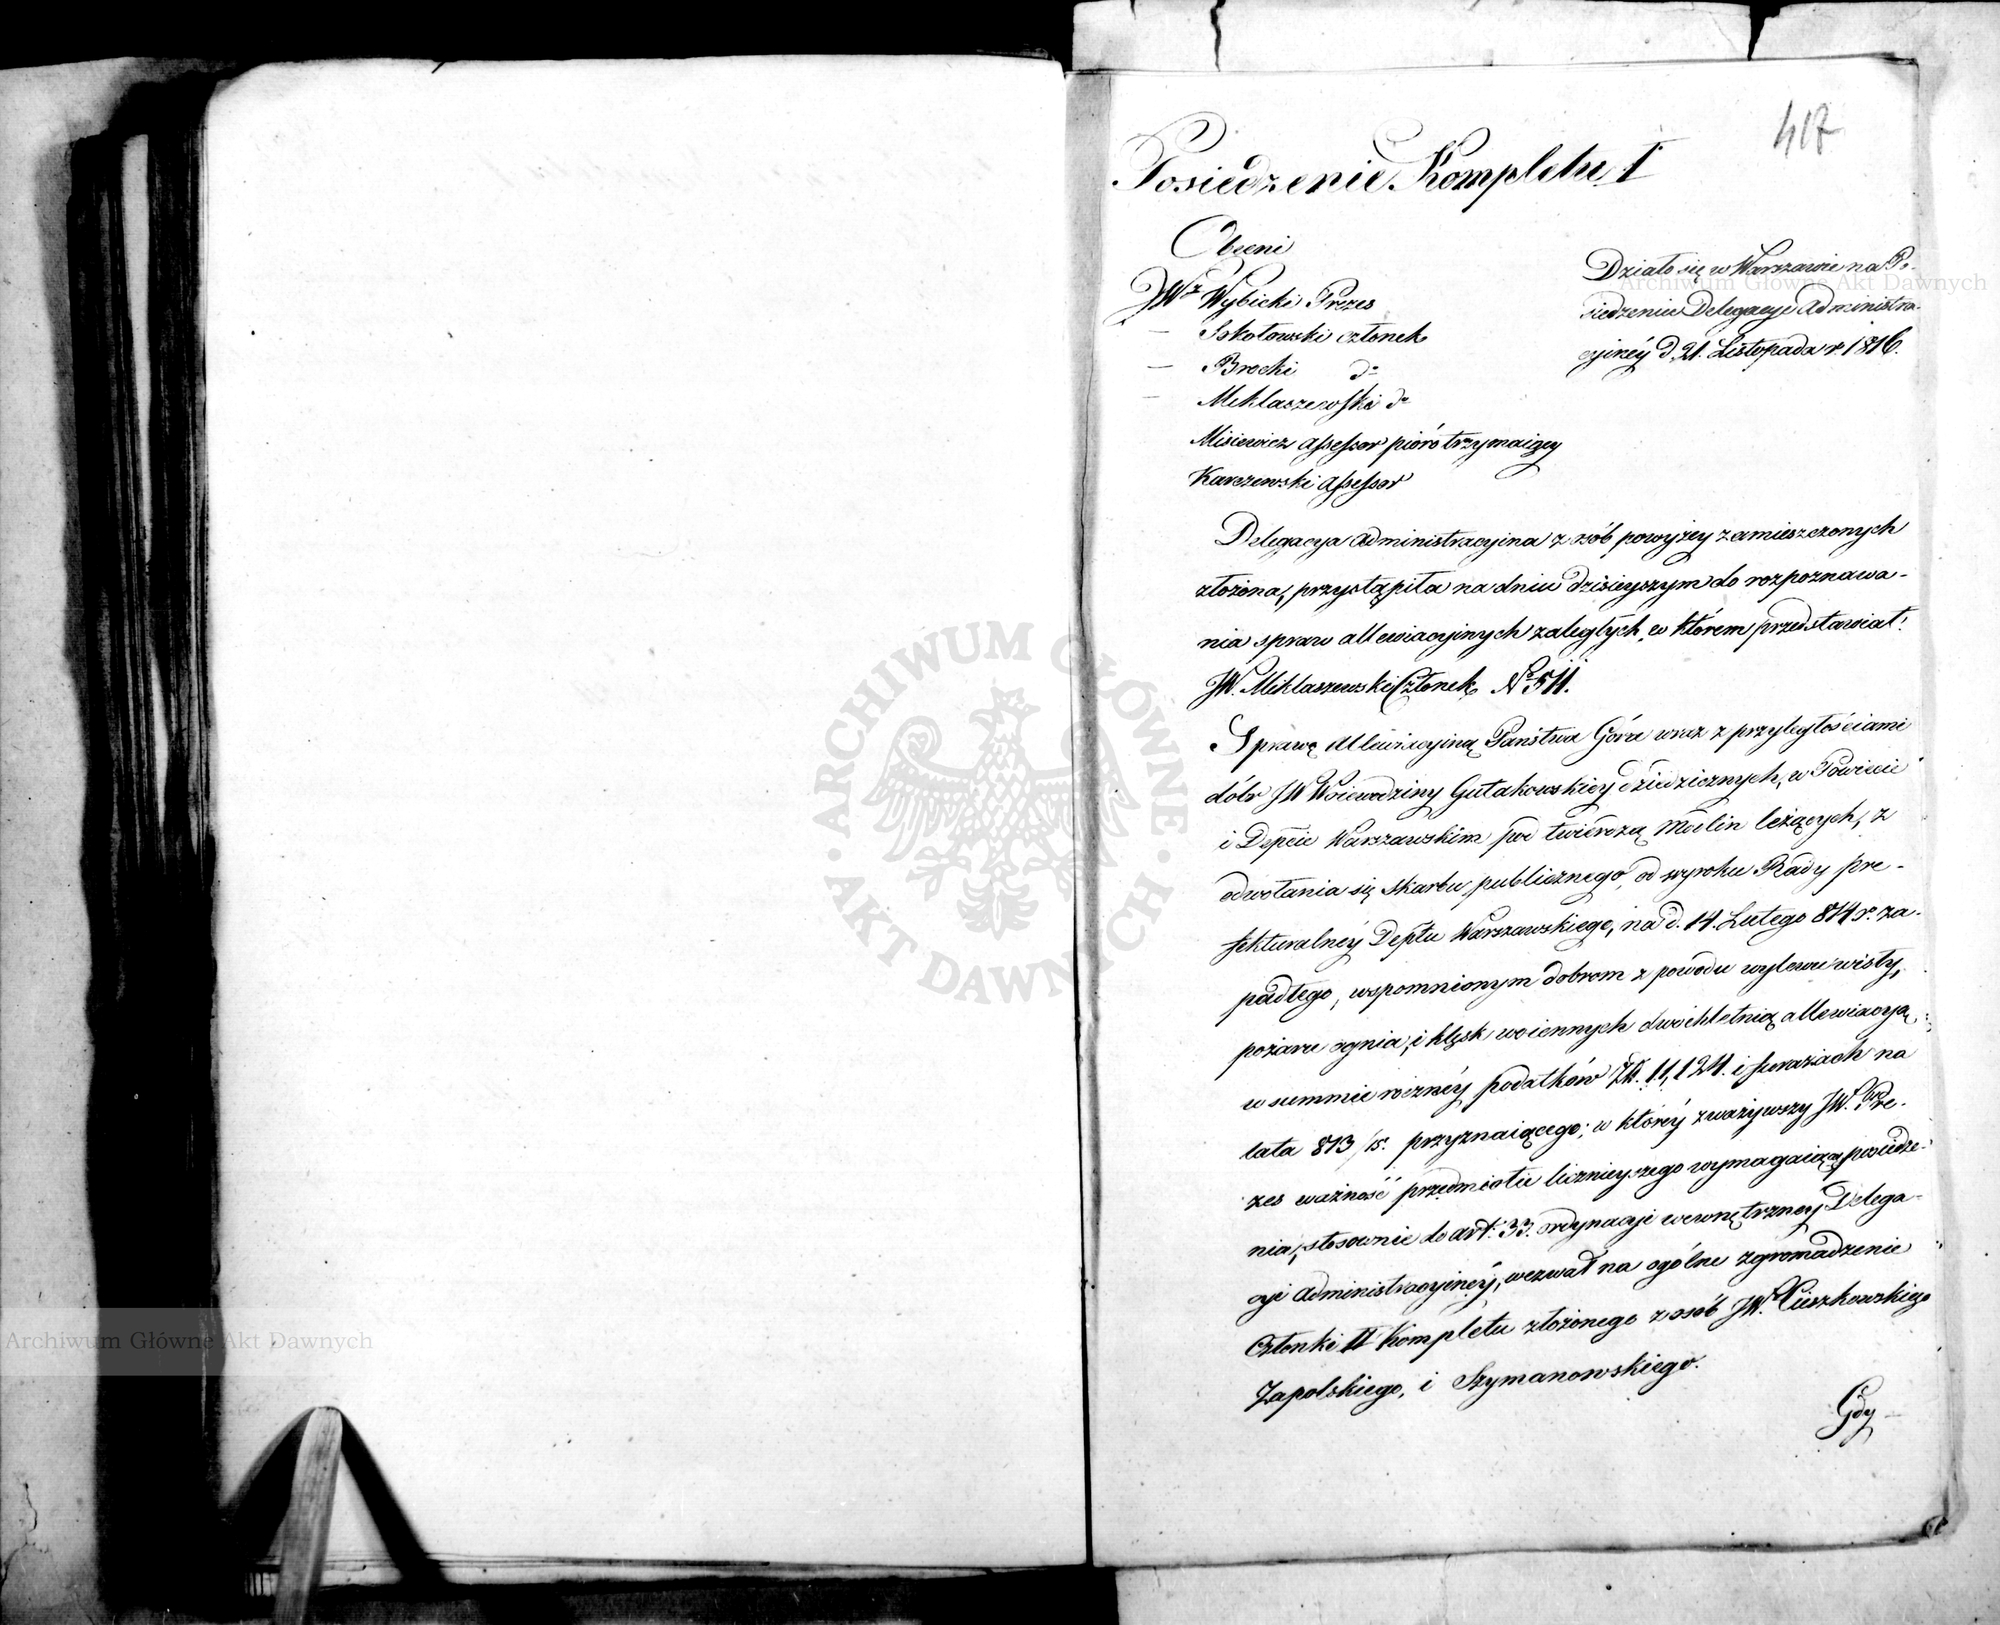 417
Posiedzenie Kompletu I
Obecni
JWż Wybicki Prezes
— Sokołowski członek
— Brocki do
— Miklaszewski do
Misiewicz assessor pióro trzymaiący
Karczewski assessor
Działo się w Warszawie na Po-
siedzeniu Delegacyi Administra-
cyinéy d. 21. Listopada r. 1816.
Delegacya Administracyina z osób powyżey zamieszczonych
złożona, przystąpiła na dniu dzisieyszym do rozpoznawa-
nia spraw allewiacyinych zaległych, w którem przedstawiał.
JW. Miklaszewski Członek No 511.
Sprawę allewiacyiną Państwa Góra wraz z przyległościami
dóbr JW Woiewodziny Gutakowskiey dziedzicznych, w Powiecie
i Depcie Warszawskim pod twierdzą Modlin leżących, z
odwołania się skarbu publicznego, od wyroku Rady pre-
fekturalnéy Deptu Warszawskiego, na d. 14. Lutego 814 r. za-
padłego, wspomnionym dobrom z powodu wylewu wisły,
pożaru ognia, i klęsk woiennych dwóchletnią allewiacyą
w summie roczney podatków Zł. 11,124. i furażach na
lata 813/15. przyznaiącego; w któréy zważywszy JW. Pre-
zes ważność przedmiotu licznieyszego wymagaiącą posiedze-
nia, stosownie do art: 33. ordynacyi wewnętrzney Delega-
cyi Administracyinéy, wezwał na ogólne zgromadzenie
Członki II Kompletu złożonego z osób JW. Cieszkowskiego
Zapolskiego, i Szymanowskiego.
Gdy
ARCHIWUM GŁÓWNE AKT DAWNYCH
Archiwum Główne Akt Dawnych
Archiwum Główne Akt Dawnych